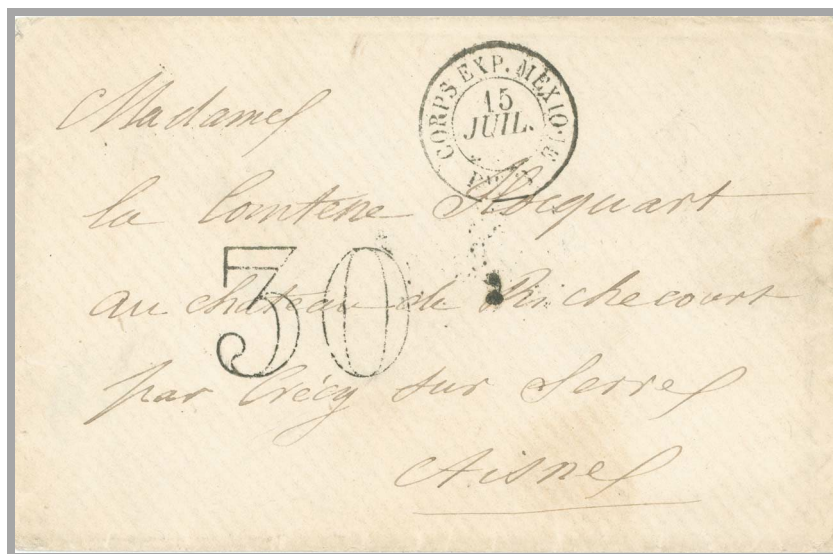 CORPS EXP. MEXIQ. 1E
15
JUIL.
Madame
la Comtesse Hocquart
30
au château de Richecourt
par Crécy sur Serre
Aisne